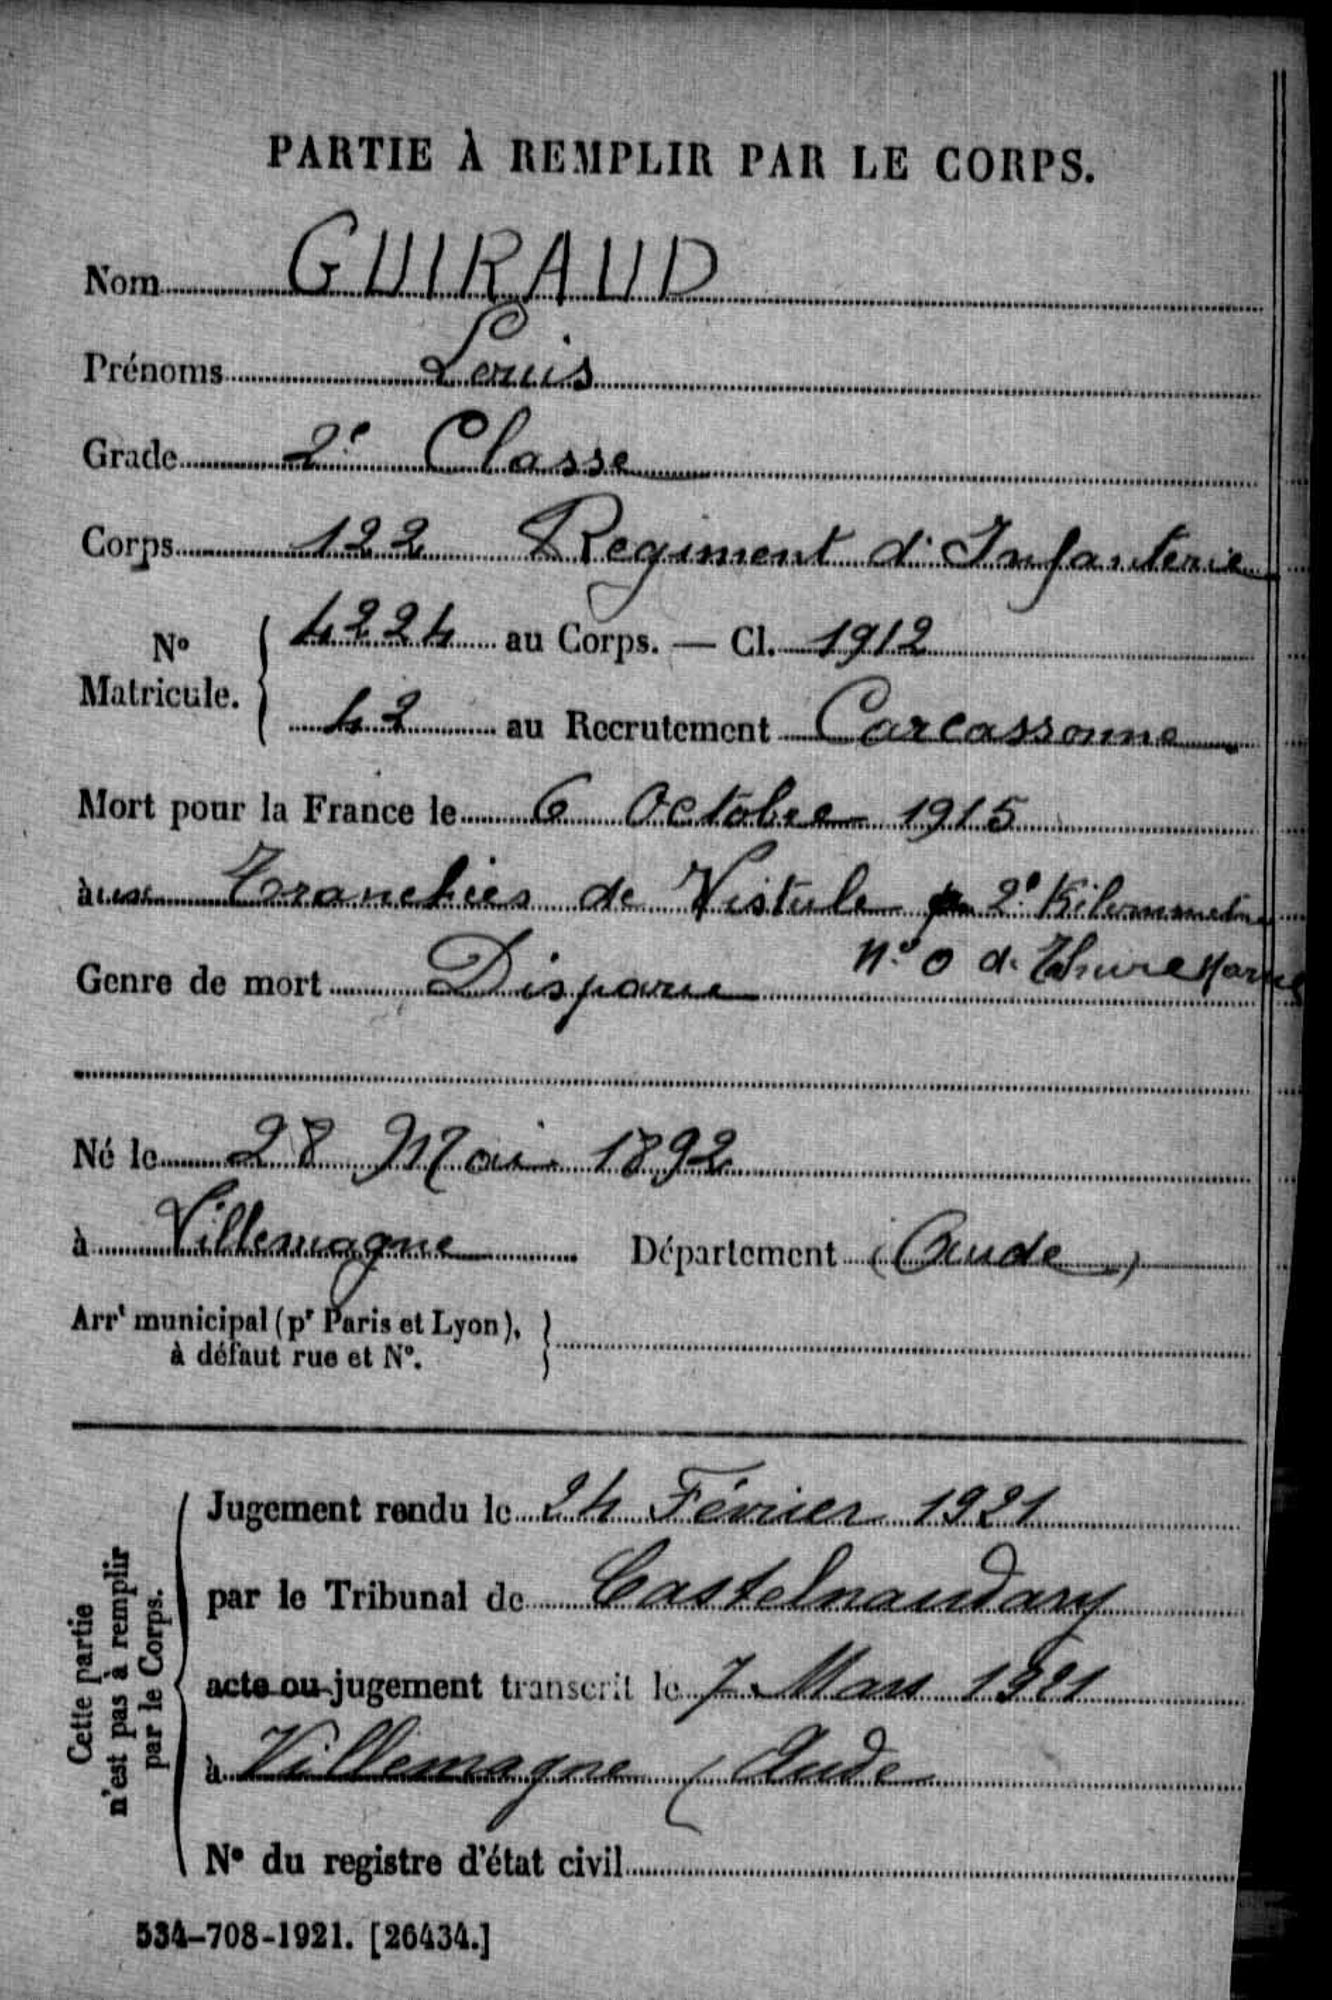 PARTIE À REMPLIR PAR LE CORPS.
Nom GUIRAUD
Prénoms Louis
Grade 2e Classe
Corps 122 Regiment d'Infanterie
No Matricule. 4224 au Corps. — Cl. 1912
42 au Recrutement Carcassonne
Mort pour la France le 6 Octobre 1915
aux Tranchées de Vistule 2e Kilommetre
No O d. Thure Marne
Genre de mort Disparu
Né le 28 Mai 1892
à Villemagne Département (Aude)
Arrt municipal (pr Paris et Lyon),
à défaut rue et No.
Cette partie
n'est pas à remplir
par le Corps.
Jugement rendu le 24 Février 1921
par le Tribunal de Castelnaudary
acte ou jugement transcrit le 7 Mars 1921
à Villemagne (Aude
No du registre d'état civil
534-708-1921. [26434.]